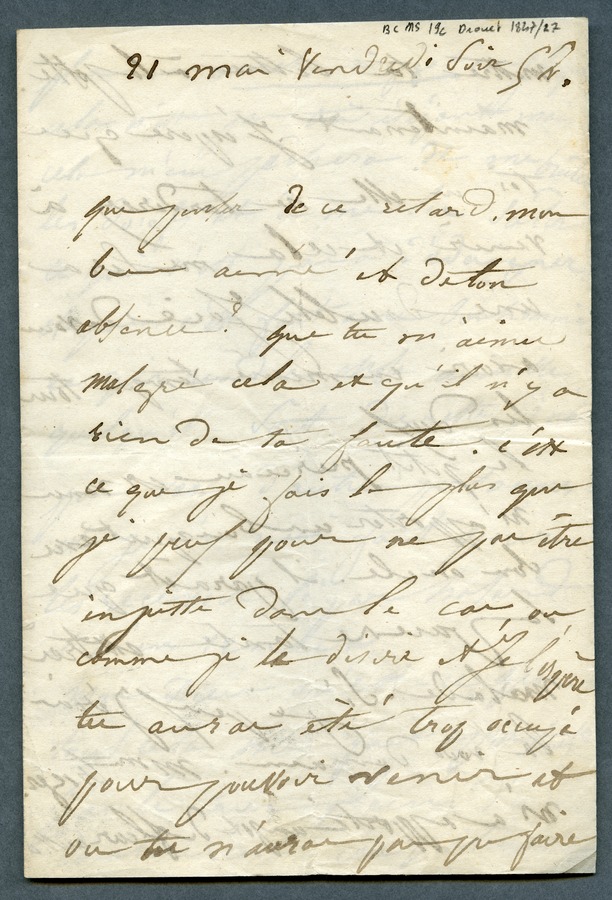 BC MS 19c Drouet 1847/27
21 mai Vendredi Soir 5h.
que penser de ce retard, mon
bien aimé et de ton
absence? que tu m'aimes
malgré cela et qu'il n'y a
rien de ta faute. c'est
ce que je fais le plus que
je peux pour ne pas être
injuste dans le cas où
comme je le désire et je l'espère
tu auras été trop occupé
pour pouvoir venir et
où tu n'auras pas pu faire